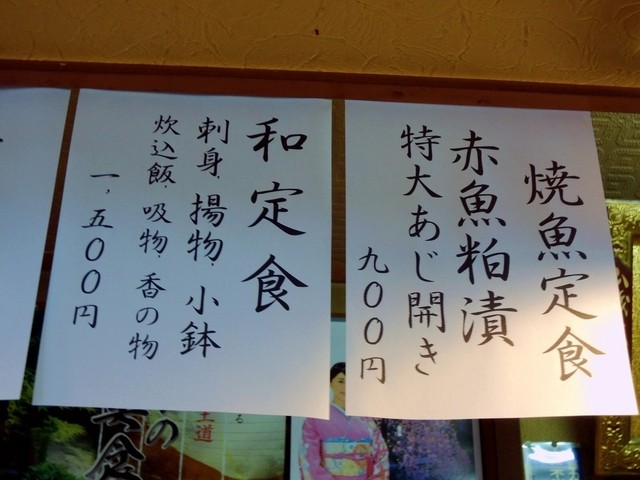 焼魚定食
赤魚粕漬
特大あじ開き
九〇〇円
和定食
刺身、揚物、小鉢
炊込飯、吸物、香の物
一、五〇〇円
王道